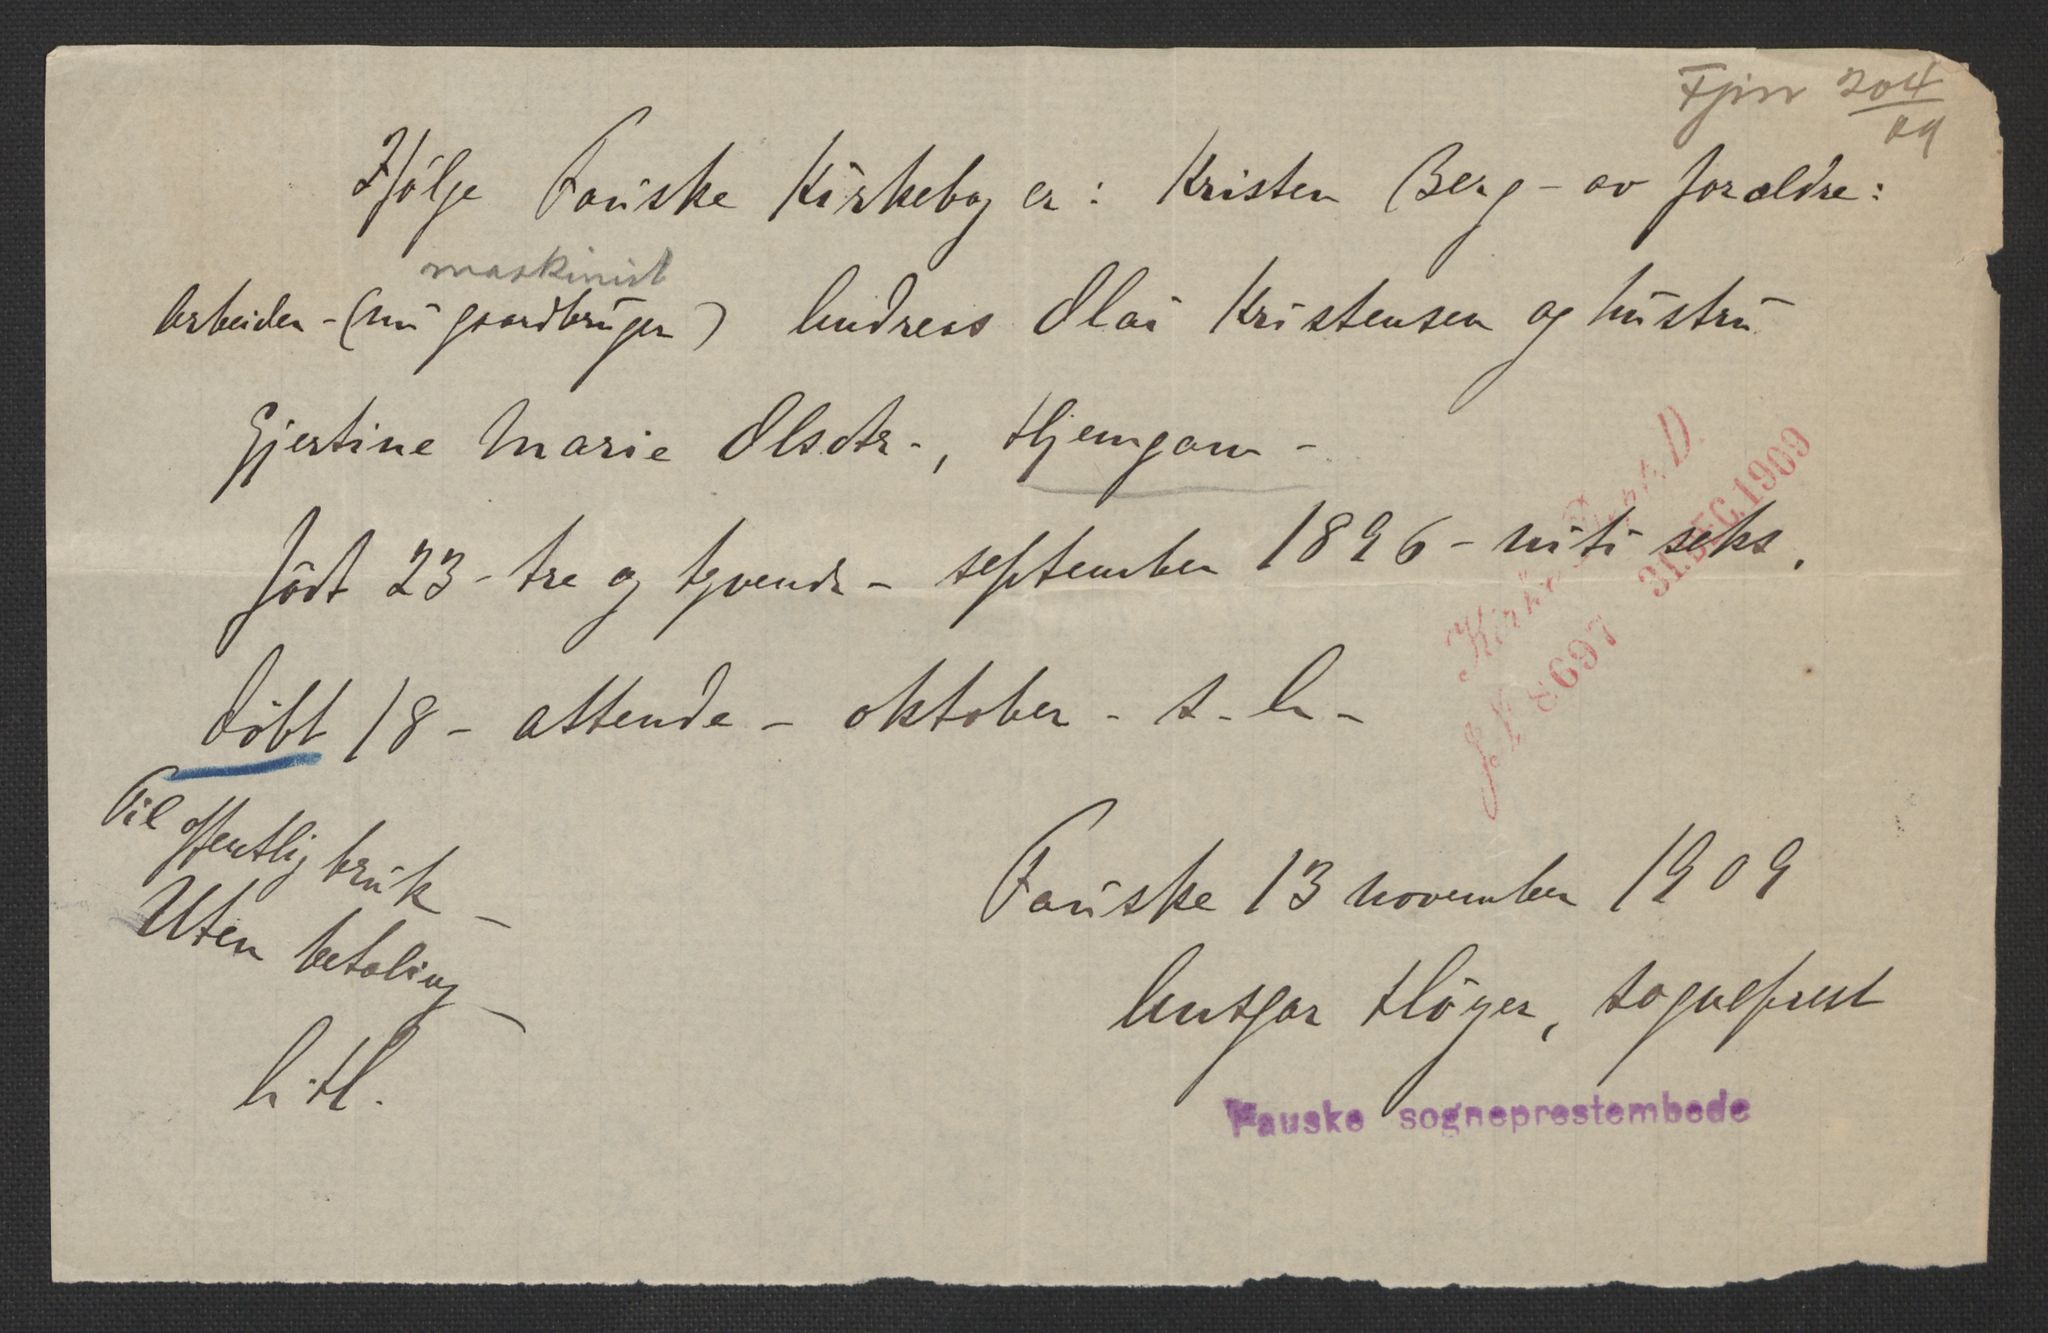 Fjin 204/09
Ifølge Fauske Kirkebog er: Kristen Berg - av forældre:
maskinist
Arbeider - (nu gaardbruger) Andreas Olai Kristensen og hustru
Gjertine Marie Olsdtr-, Hjemgam -
født 23 - tre og tyvende - september 1896 - niti seks.
døbt 18 - attende - oktober - s. A -
Kirke Dept. D.
31.DEC.1909
J.N 8697
Til offentlig bruk -
Uten betaling -
A. H.
Fauske 13 november 1909
Ansgar Høyer, sogneprest
Fauske sogneprestembede